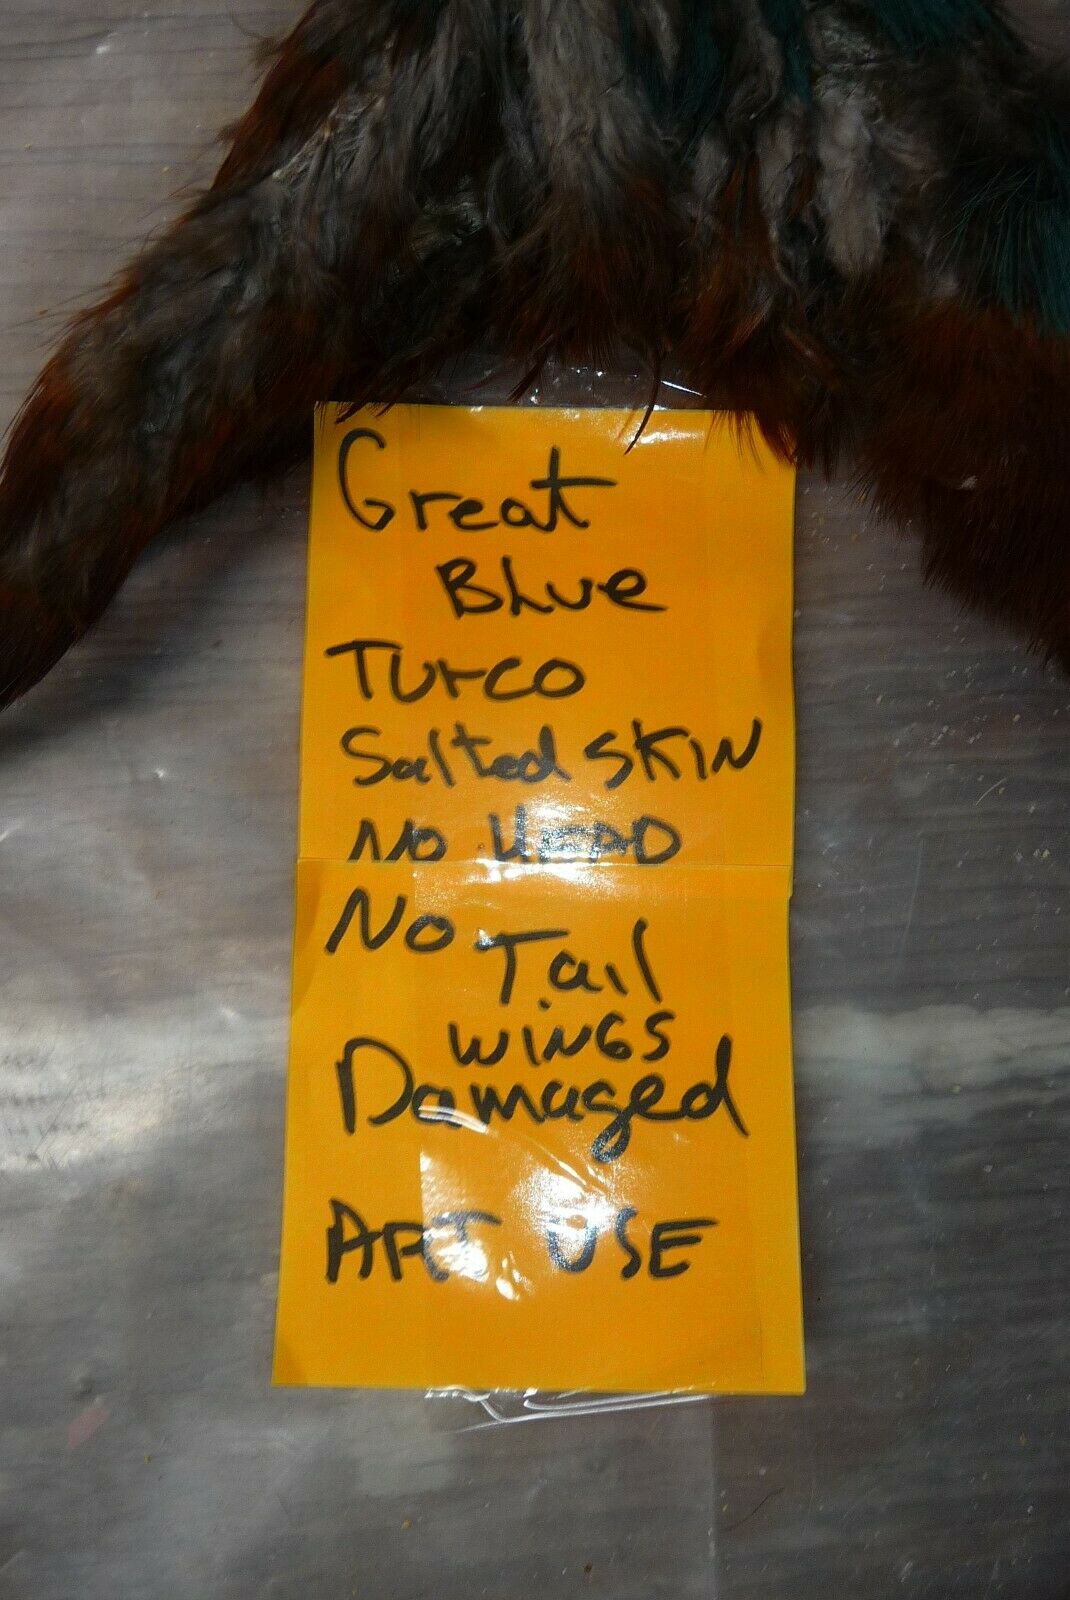 Great
BLue
Turco
Salted SKIN
NO HEAD
No Tail
WINGS
Damaged
ART USE